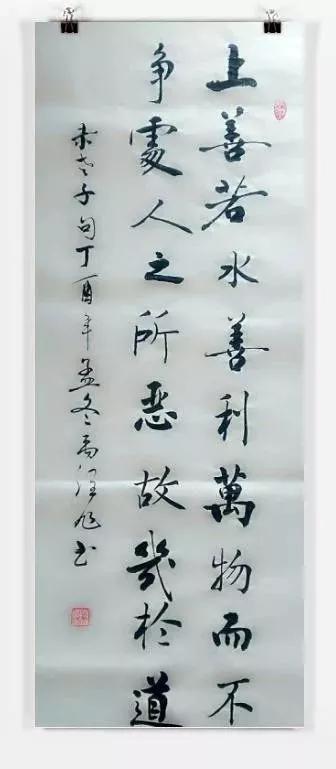 上善若水善利萬物而不
争處人之所惡故幾於道
老子句丁酉年孟冬高 旭书